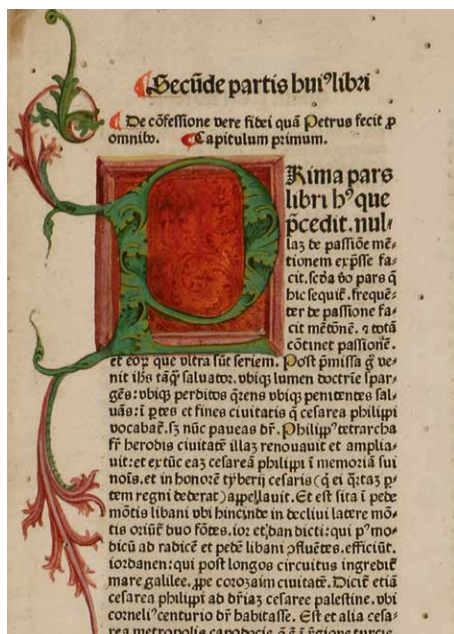 Secūde partis huiꝰ libri
De cōfessione vere fidei quā Petrus fecit ꝓ
omnibꝰ. Capitulum primum.
PRima pars
libri hꝰ que
p̄cedit. nul⸗
laꝫ de passiōe mē⸗
tionem exp̄sse fa⸗
cit. scd̄a v̄o pars q̄
hic sequit̄. frequē⸗
ter de passione fa⸗
cit mētōnē. ⁊ totā
cōtinet passionē.
et eoꝝ que vltra sūt seriem. Post p̄missa g̊ ve⸗
nit ihs tāq̄ saluator. vbiqꝫ lumen doctrīe spar⸗
gēs: vbiqꝫ perditos q̄rens vbiqꝫ penitentes sal⸗
uās: ī ꝑtes et fines ciuitatis q̄ cesarea philippi
vocabat̄. sꝫ nūc paueas dr̄. Philippꝰ tetrarcha
fr̄ herodis ciuitatē illaꝫ renouauit et amplia⸗
uit: et ex tūc eaꝫ cesareā philippi ī memoriā sui
noīs. et in honorē tyberij cesaris (q̄ ei q̄rtaꝫ ꝑ⸗
tem regni dederat) appellauit. Et est sita ī pede
mōtis libani vbi hincinde in decliui latere mō⸗
tis oriūt̄ duo fōtes. ior et dan dicti: qui pꝰ mo⸗
dicū ad radicē et pedē libani ꝯfluētes. efficiūt.
iordanen: qui post longos circuitus ingredit̄
mare galilee. ꝓpe corozaim ciuitatē. Dicit̄ etiā
cesarea philippi ad dr̄iaꝫ cesaree palestine. vbi
corneliꝰ centurio dr̄ habitasse. Est et alia cesa⸗
rea metropolis capadocie